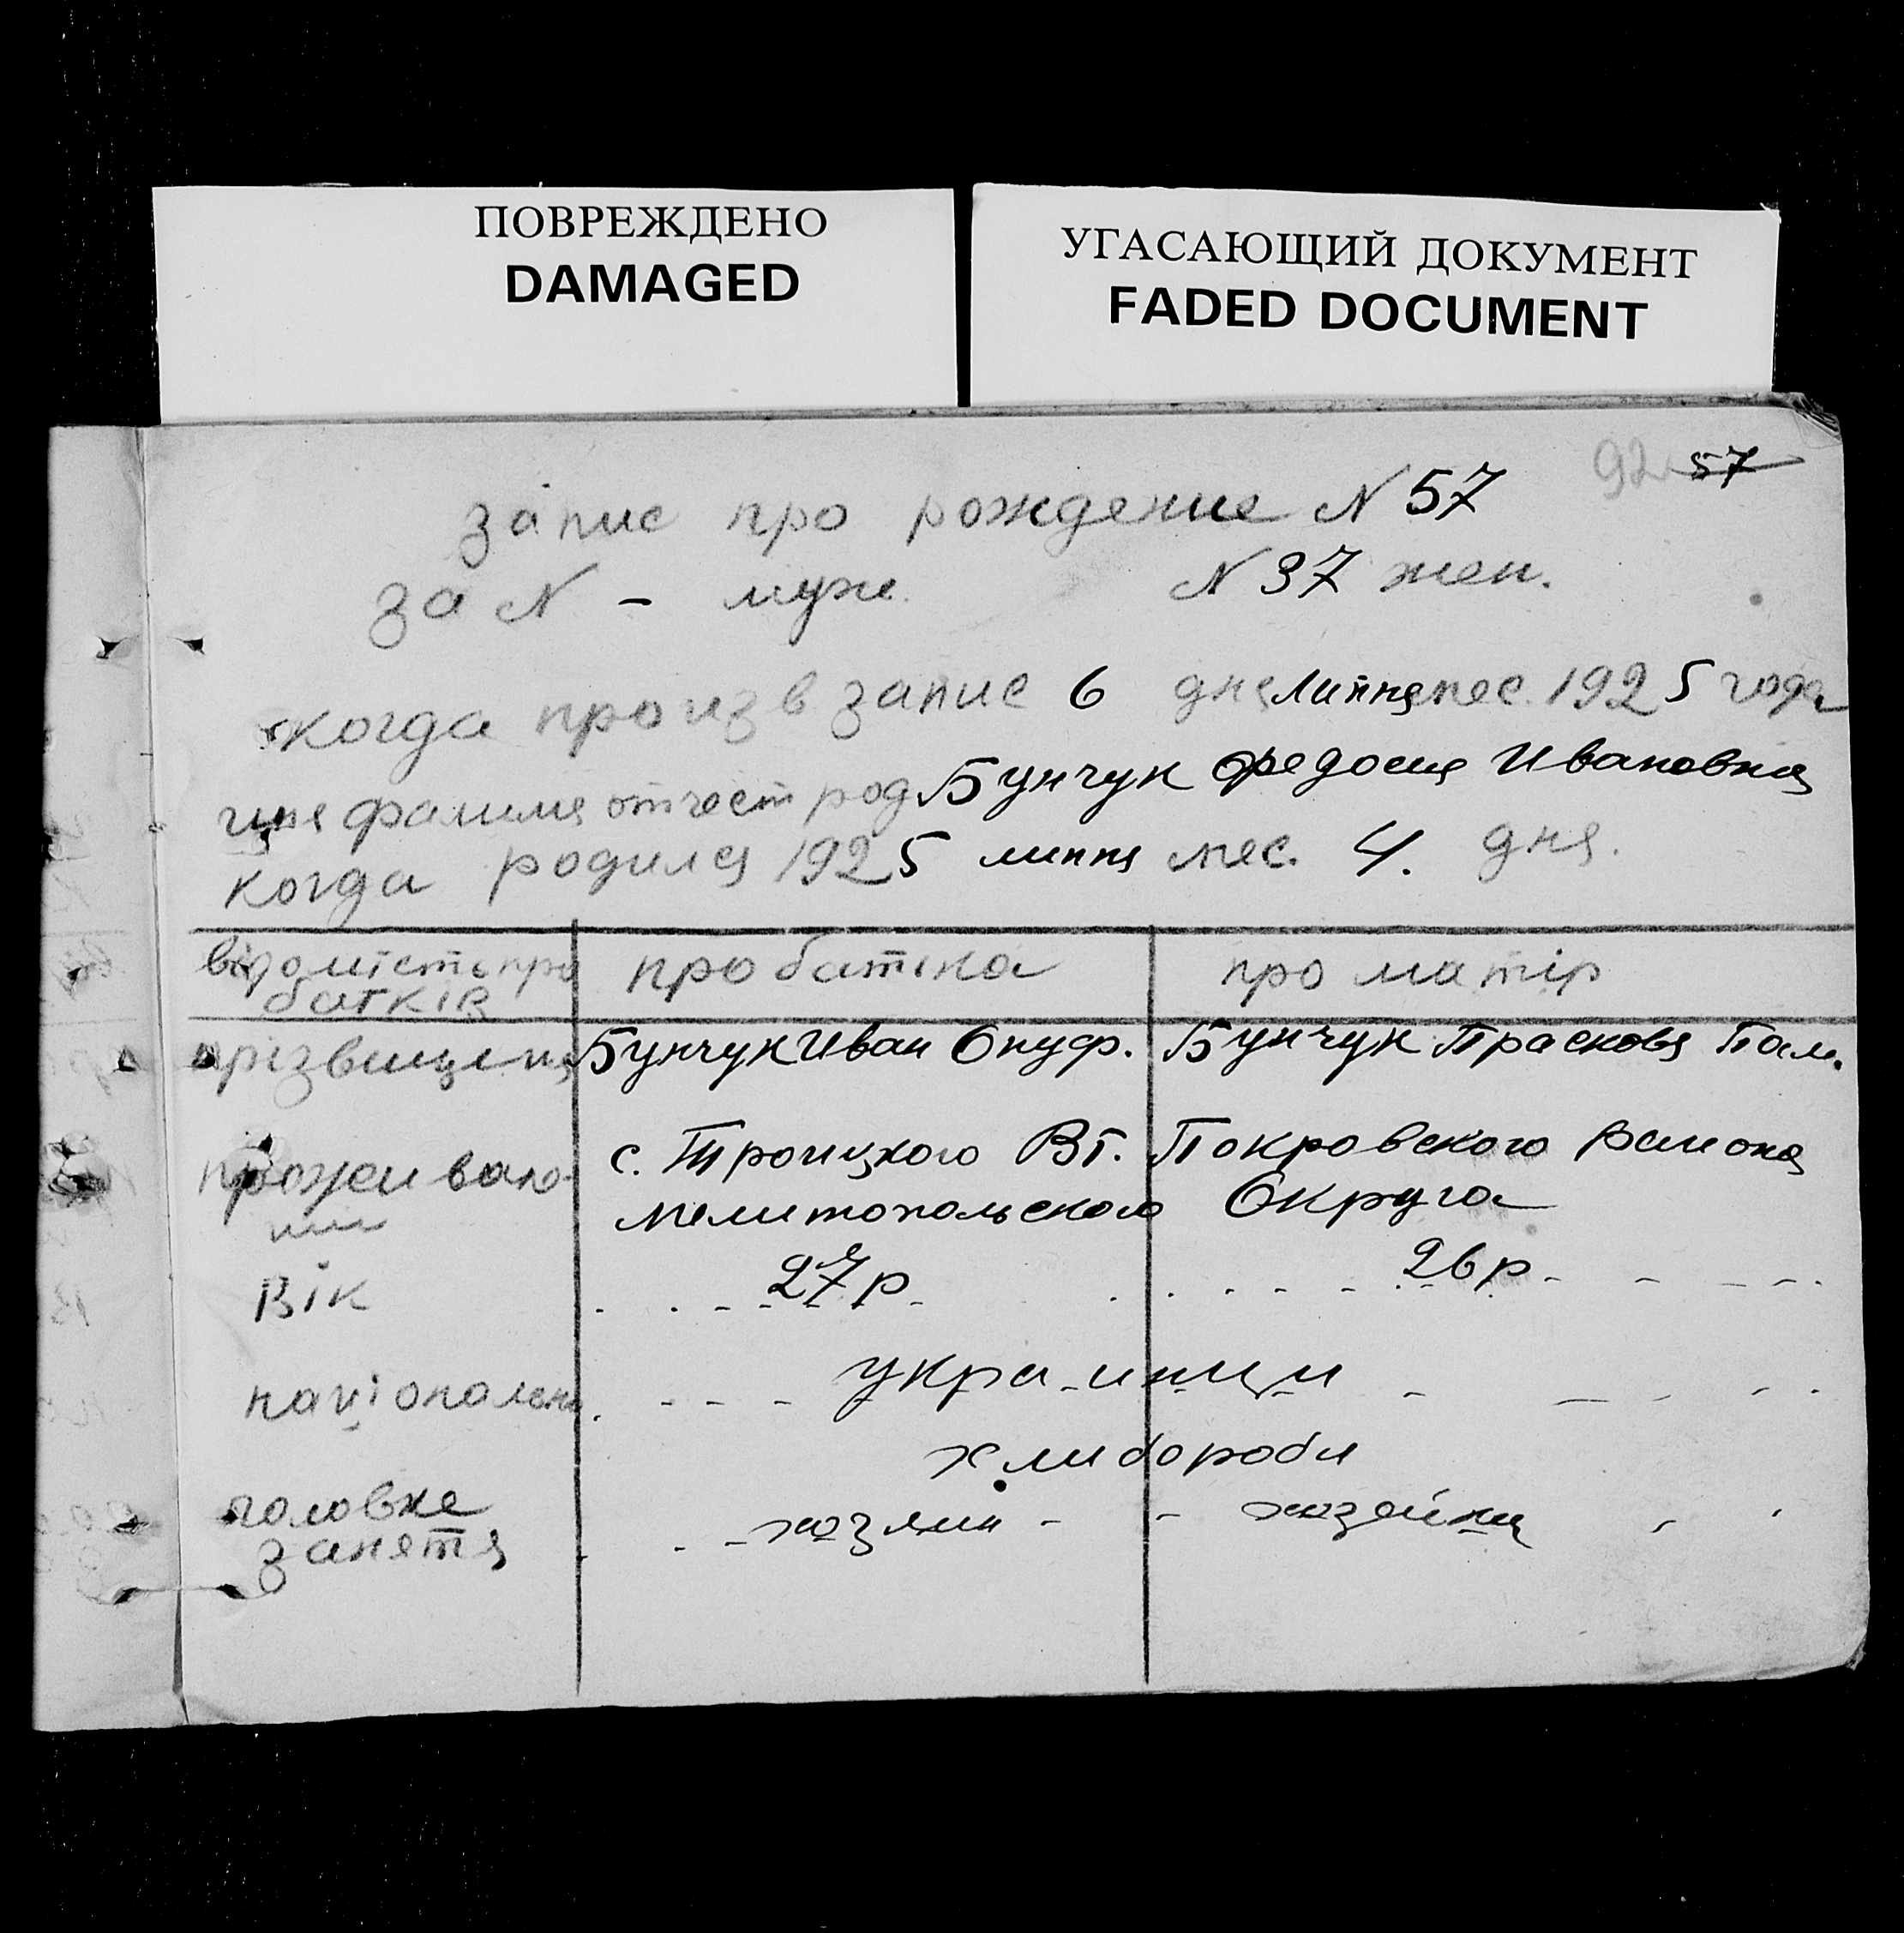 ПОВРЕЖДЕНО
DAMAGED
УГАСАЮЩИЙ ДОКУМЕНТ
FADED DOCUMENT
92 57
запис про рождение N 57
за N - муж. N 37 жен.
когда произв запис 6 дня липня мес. 1925 года
имя фамилия отчест род Бунчук Федосия Ивановна
когда родился 1925 липня мес. 4. дня.
відомість про батків
про батька
про матір
прізвище имя Бунчук Иван Онуф. Бунчук Прасковя Пам.
проживаю- с. Троицкого Вт. Покровского района
чии Мелитопольского Округа
Вік 27 р 26 р
національ украинци
хлибороби
головне хозяин - - хозяйка
занятя